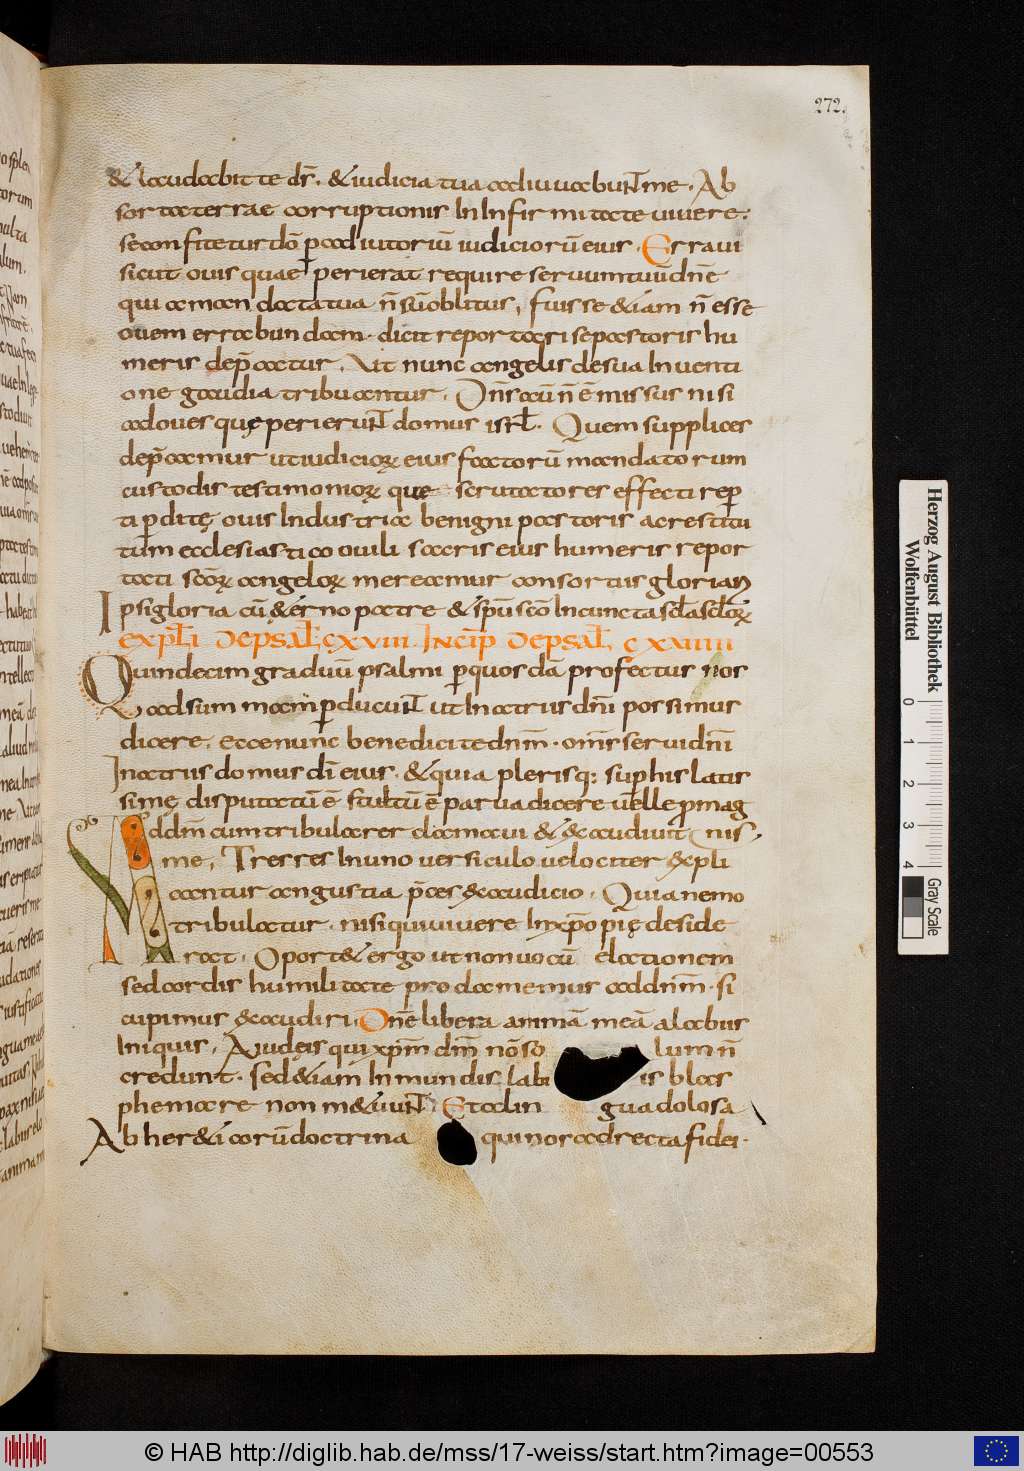 272.
& laudabit te dr̄. & iudicia tua adiuuabunt me. Ab
sortae terrae corruptionis in infirmitate uiuere.
se confitetur dō p adiutoriū iudiciorū eius. Erraui
sicut ouis quae perierat require seruum tuū dn̄e
quia mandata tua n̄ sū oblitus, fuisse &iam n̄ esse
ouem errabundam. dicit reportari se pastoris hu
meris dep̄catur. Ut nunc angelis de sua inuenti
one gaudia tribuantur. Dn̄s aū n̄ ē missus nisi
ad oues quę perierunt domus isrł. Quem supplices
dep̄camur ut iudicioꝝ eius factorū mandatorum
custodis testimonioꝝ que scrutatores effecti rep
ti p ditę ouis industria benigni pastoris ac restitu
tum ecclesiastico ouili sacris eius humeris repor
tati scōꝝ angeloꝝ mereamur consortiis gloriari
Ipsi gloria cū &erno patre & spū scō in cuncta scła scłoꝝ
expłi de psał cxviii. Incip de psał cxviiii
Quindecim graduū psalmi p quos dā profectus nos
ad summam pducunt ut in atriis dn̄i possimus
dicere. ecce nunc benedicite dnm̄. om̄s serui dn̄i
In atriis domus di eius. & quia plerisq: sup his latis
simę disputatū ē stultū ē parua dicere uelle p mag
Ad dn̄m cum tribularer clamaui & exaudiuit nis,
me. Tres res in uno uersiculo uelociter expli
cantur angustia p̄ces exaudicio. Quia nemo
tribulatur. nisi qui uiuere in xp̄o pię deside
rat. Oport& ergo ut non uocū elationem
sed cordis humilitate pro clamemus ad dnm̄. si
cupimus exaudiri. Dn̄e libera animā meā a labiis
iniquis. A iudęis qui xpm̄ dm̄ nō so lum n̄
credunt. sed &iam in mundis labi is blas
phemare non m&uunt Et a lin gua dolosa
Ab her&icorū doctrina qui nos ad recta fidei.
Herzog August Bibliothek
Wolfenbüttel
0 1 2 3 4
Gray Scale
© HAB http://diglib.hab.de/mss/17-weiss/start.htm?image=00553